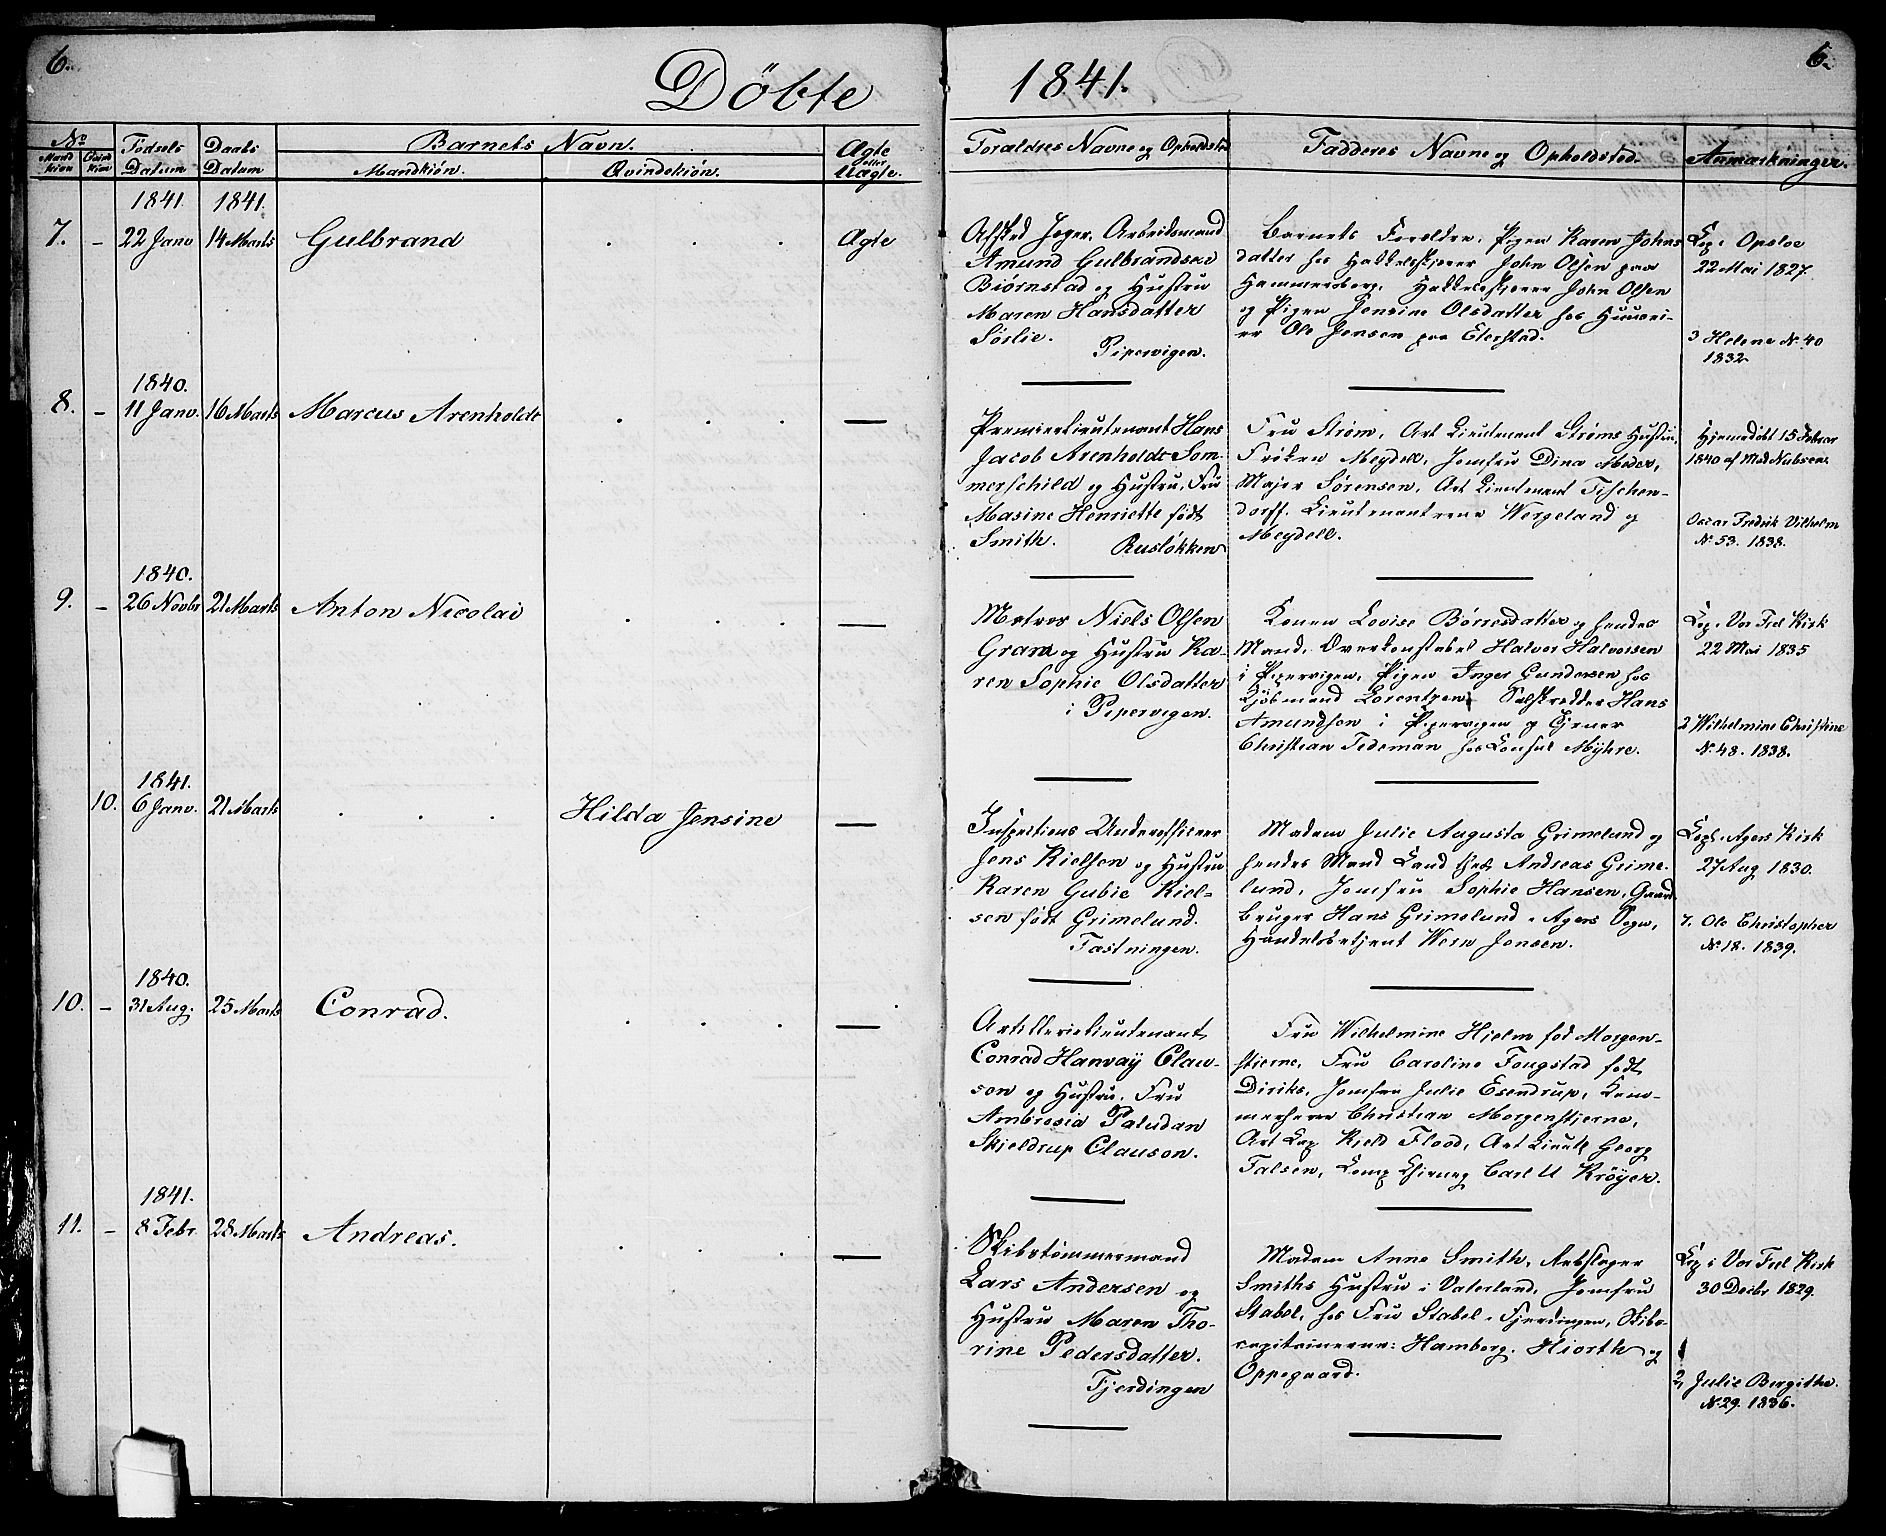 6.
Döbte
1841.
6.
No
Mandkiön
Qvindkiön
Födsels Datum
Daabs Datum
Barnets Navn.
Mandkiön.
Qvindekiön.
Ægte eller Uægte.
Forældres Navne og Opholdsted
Faddernes Navne og Opholdsted.
Anmærkninger.
1841. 1841.
7. - 22 Janv 14 Marts Gulbrand . . . Ægte
Afsked Jæger. Arbeidsmand
Amund Gulbrandsen
Biørnstad og Hustru
Maren Hansdatter
Sørlie.
Pipervigen.
Barnets Forældre, Pigen Karen Johns
datter hos John Olsen paa
Hammersborg, John Olsen
og Pigen Jensine Olsdatter hos Huusei-
er Ole Jensen paa Eterstad.
Cop: Opsloe
22 Mai 1827.
3 Helene No 40
1832.
1840.
8. - 11 Janv. 16 Marts Marcus Arenholdt . . . —
Premierlieutenant Hans
Jacob Arenholdt Som-
merschild og Hustru, Fru
Masine Henriette født
Smith. Rusløkken
Fru Strøm, Art Lieutenant Strøms Hustru,
Frøken Meydell, Jomfru Dina Meder,
Major Sørensen, Art Lieutenant Tischen-
dorff, Lieutenanterne Wergeland og
Meydell.
Hjemedøbt 15 Febvar
1840 af Mad Nubsen.
Oscar Fredrik Vilhelm
No 53. 1838.
1840.
9. - 26 Novbr 21 Marts Anton Nicolai . . . —
Matros Niels Olsen
Gram og Hustru Ka-
ren Sophie Olsdatter
i Pipervigen.
Konen Lovise Børresdatter og hendes
Mand, Overkonstabel Halvor Halvorsen
i Pipervigen, Pigen Inger Gundersen hos
Kjøbmand Lorentzen, Hans
Amundsen i Pipervigen og
Christian Tideman hos Consul Myhre.
Cop: Vor Frel Kirk
22 Mai 1835
2 Wilhelmine Christine
No 48. 1838.
1841.
10. 6 Janv. 21 Marts . . . Hilda Jensine —
Inspections Underofficeer
Jens Kielsen og Hustru
Karen Gubie Kiel-
sen født Grimelund.
Fæstningen.
Madam Julie Augusta Grimelund og
hendes Mand Cand theol Andreas Grime-
lund, Jomfru Sophie Hansen, Gaard
bruger Hans Grimelund i Agers Sogn,
Handelsbetjent Wern Jensen.
Cop: Agers Kirk
27 Aug 1830.
7. Ole Christopher
No 18. 1839.
1840.
10. - 31 Aug. 25 Marts Conrad. . . . —
Artillerielieutenant
Conrad Hanvaÿ Clau-
son og Hustru, Fru
Ambrosia Paludan
Skjeldrup Clauson.
Fru Wilhelmine Hjelm fød Morgen-
stierne, Fru Caroline Fougstad født
Diriks, Jomfru Julie Esendrup, Kam-
merherre Christian Morgenstjerne,
Art Cap Kield Flood, Art Lieut Georg
Falsen, Comp Chirurg Carl U Krøyer.
1841.
11. - 8 Febr 28 Marts Andreas. . . . —
Skibstømmermand
Lars Andersen og
Hustru Maren Tho-
rine Pedersdatter.
Fjerdingen
Madam Anne Smith, Rebslager
Smiths Hustru i Vaterland, Jomfru
Stabel, hos Fru Stabel i Fjerdingen, Skibs-
capitainerne: Hamborg, Hiorth og
Oppegaard.
Cop: i Vor Frel Kirk
30 Decbr 1829.
2, Julie Bergithe
No 29. 1836.